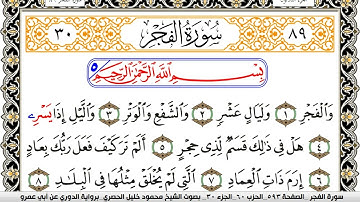 ٨٩ سُورَةُ الْفَجْرِ ٣٠
بِسْمِ اللَّهِ الرَّحْمَٰنِ الرَّحِيمِ
وَالْفَجْرِ ١ وَلَيَالٍ عَشْرٍ ٢ وَالشَّفْعِ وَالْوَتْرِ ٣ وَالَّيْلِ إِذَا يَسْرِۦ
٤ هَلْ فِي ذَٰلِكَ قَسَمٌ لِّذِي حِجْرٍ ٥ أَلَمْ تَرَ كَيْفَ فَعَلَ رَبُّكَ بِعَادٍ
٦ إِرَمَ ذَاتِ الْعِمَادِ ٧ الَّتِي لَمْ يُخْلَقْ مِثْلُهَا فِي الْبِلَادِ
سورة الفجر الصفحة ٥٩٣ الحزب ٦٠ الجزء ٣٠ بصوت الشيخ محمود خليل الحصري برواية الدوري عن أبي عمرو